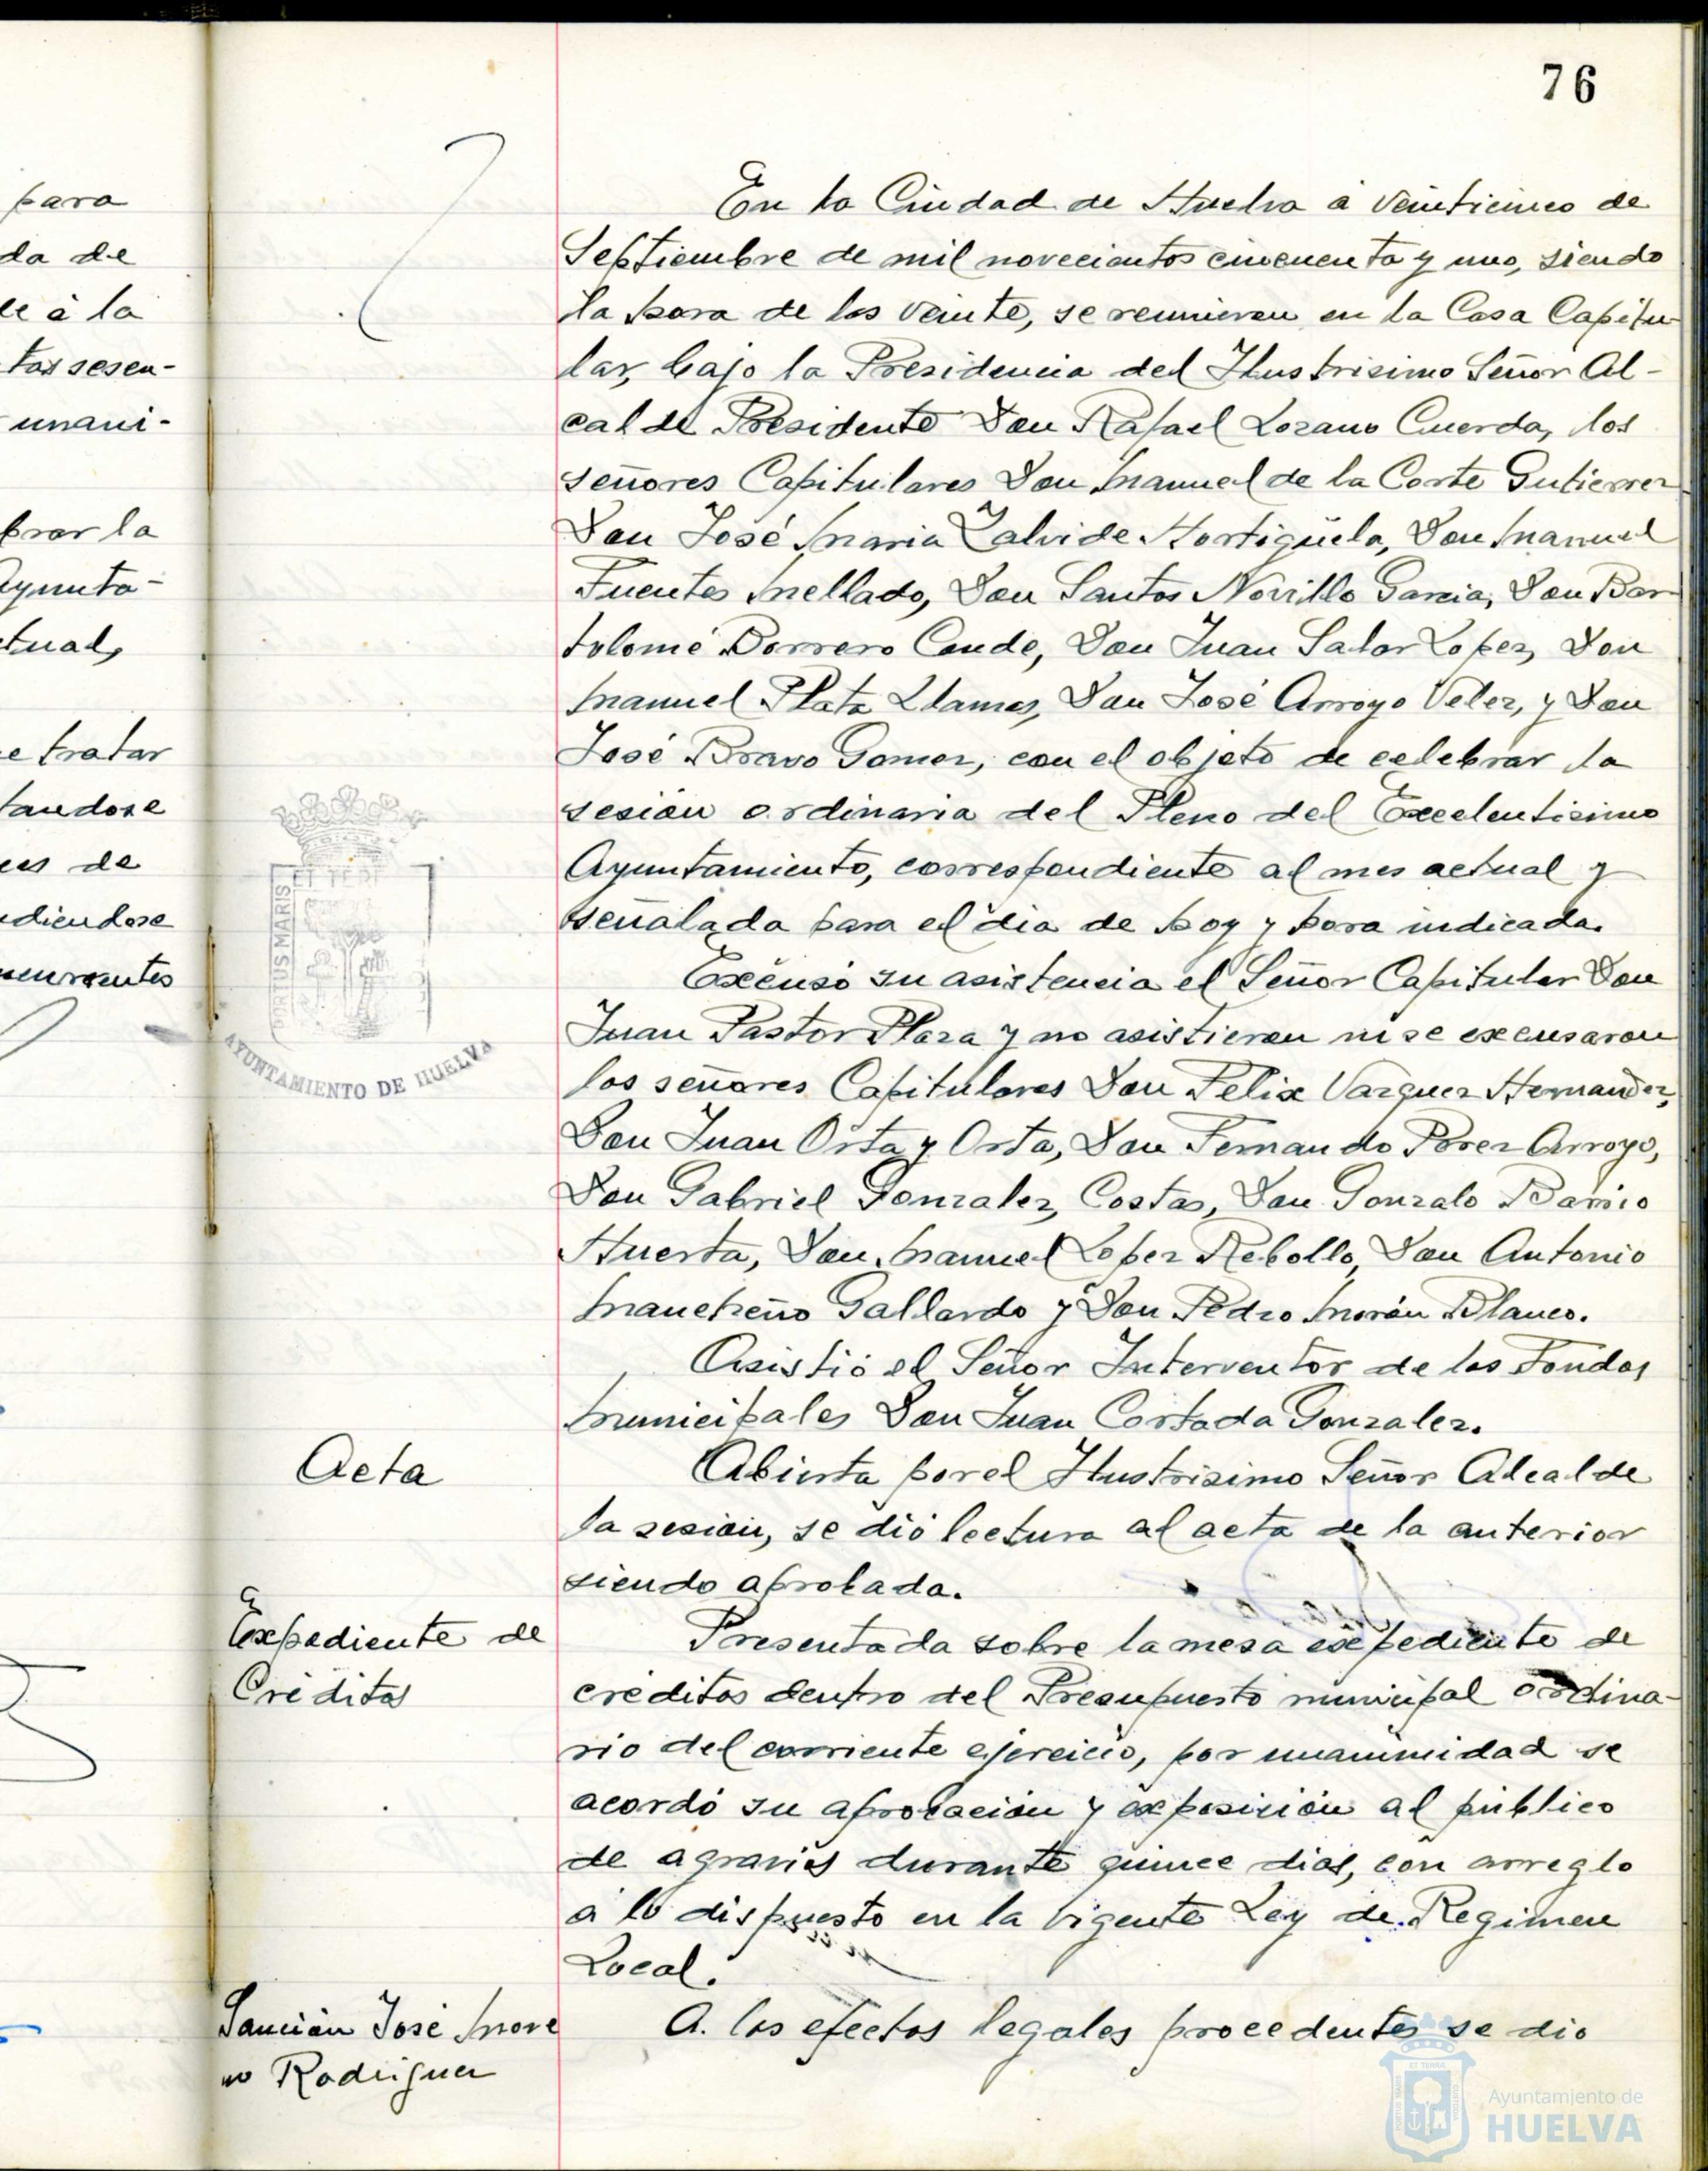 76
para
da de
le á la
tas sesen-
unani-
brar la
Ayunta-
ctual,
e tratar
tandose
es de
diendose
currentes
En la Ciudad de Huelva á veinticinco de
Septiembre de mil novecientos cincuenta y uno, siendo
la hora de las veinte, se reunieron en la Casa Capitu-
lar, bajo la Presidencia del Ilustrisimo Señor Al-
calde Presidente Don Rafael Lozano Cuerda, los
señores Capitulares Don Manuel de la Corte Gutierrez
Don José Maria Zalvide Hortigüela, Don Manuel
Fuentes Mellado, Don Santos Novillo Garcia, Don Bar
tolomé Borrero Conde, Don Juan Salor Lopez, Don
Manuel Plata Llamas, Don José Arroyo Velez, y Don
José Bravo Gomez, con el objeto de celebrar la
sesión ordinaria del Pleno del Excelentisimo
Ayuntamiento, correspondiente al mes actual y
señalada para el dia de hoy y hora indicada.
ET TERR
PORTUS MARIS
AYUNTAMIENTO DE HUELVA
Excusó su asistencia el Señor Capitular Don
Juan Pastor Plaza y no asistieron ni se excusaron
los señores Capitulares Don Felix Vazquez Hernandez,
Don Juan Orta y Orta, Don Fernando Perez Arroyo,
Don Gabriel Gonzalez Costas, Don Gonzalo Barrio
Huerta, Don Manuel Lopez Rebollo, Don Antonio
Mancheño Gallardo y Don Pedro Morón Blanco.
Asistió el Señor Interventor de los Fondos
Municipales Don Juan Cortada Gonzalez.
Acta
Abierta por el Ilustrisimo Señor Alcalde
la sesión, se dió lectura al acta de la anterior
siendo aprobada.
Expediente de
Créditos
Presentada sobre la mesa expediente de
créditos dentro del Presupuesto municipal ordina-
rio del corriente ejercicio, por unanimidad se
acordó su aprobación y exposición al público
de agravios durante quince dias, con arreglo
á lo dispuesto en la vigente Ley de Regimen
Local.
Sanción José More
no Rodriguez
A los efectos legales procedentes se dió
Ayuntamiento de
HUELVA